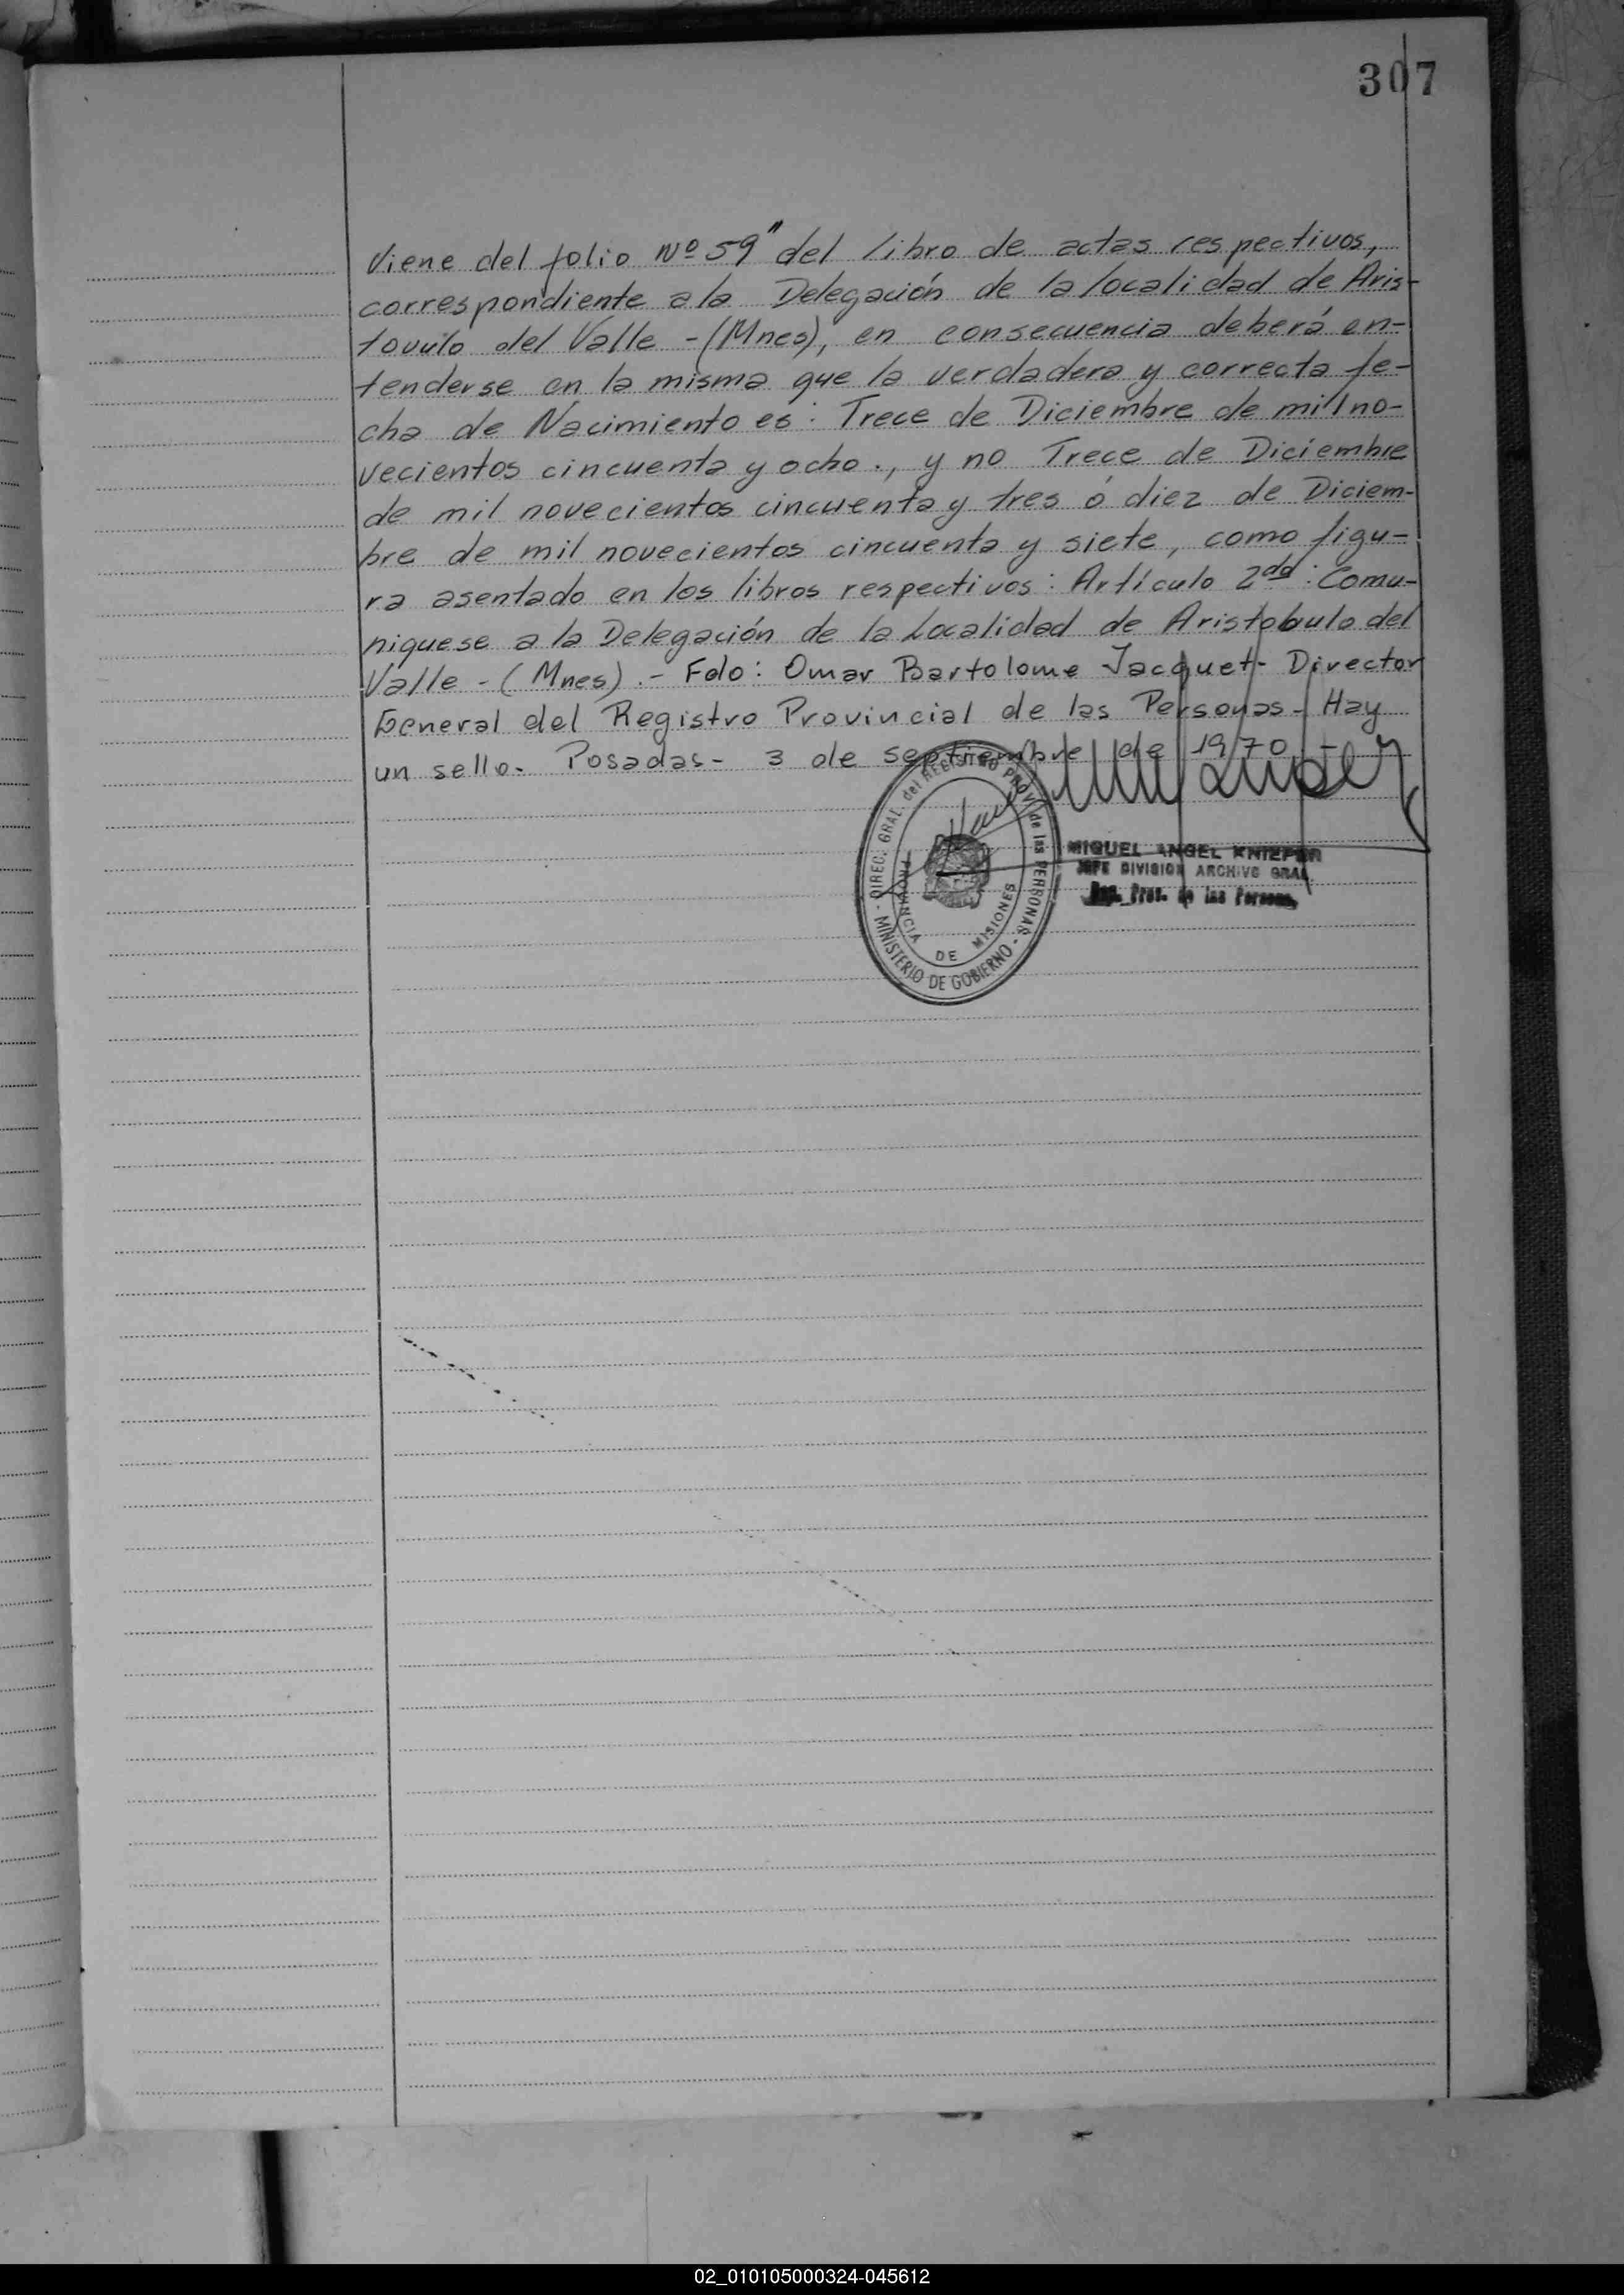 307
Viene del folio Nº 59" del libro de actas respectivos,
correspondiente a la Delegación de la localidad de Aris-
tovulo del Valle - (Mnes), en consecuencia deberá en-
tenderse en la misma que la verdadera y correcta fe-
cha de Nacimiento es: Trece de Diciembre de mil no-
vecientos cincuenta y ocho., y no Trece de Diciembre
de mil novecientos cincuenta y tres ó diez de Diciem-
bre de mil novecientos cincuenta y siete, como figu-
ra asentado en los libros respectivos: Artículo 2do: Comu-
niquese a la Delegación de la Localidad de Aristobulo del
Valle - (Mnes).- Fdo: Omar Bartolome Jacquet- Director
General del Registro Provincial de las Personas- Hay
un sello- Posadas- 3 de septiembre de 1970.-
DIREC. GRAL. del REGISTRO PROV. de las PERSONAS
PROVINCIA DE MISIONES
- MINISTERIO DE GOBIERNO -
MIGUEL ANGEL KNIEPER
JEFE DIVISION ARCHIVO GRAL.
Reg. Prov. de las Personas
02_010105000324-045612